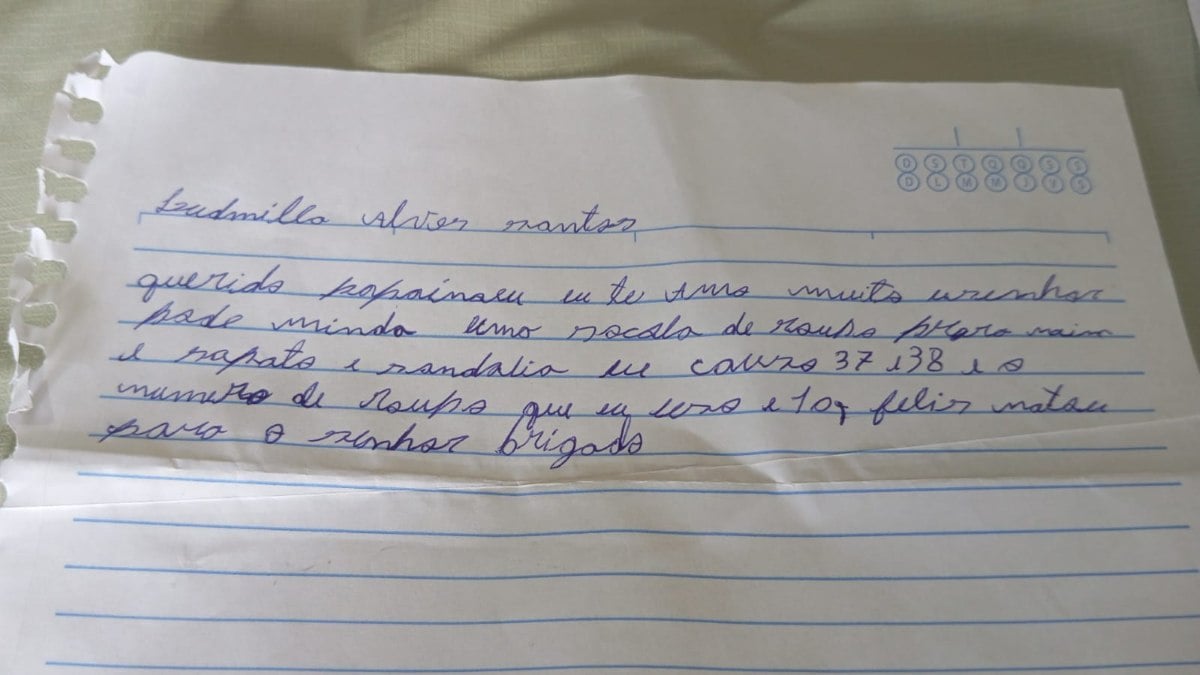 D S T Q Q S S
D L M M J V S
Ludmilla Alves santos
querido papainaeu eu te Amo muito usenhor
pode minda uma sacola de roupa para
e sapato e sandalia eu causo 37 e38 e o
numero de roupa que eu uso e 10, felis nataeu
para o senhor brigado